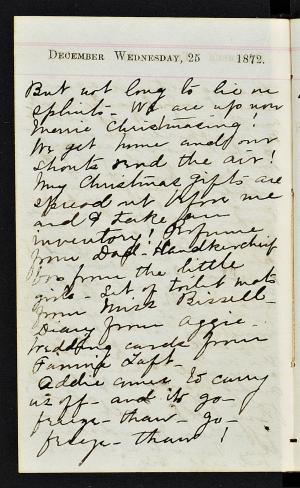 December Wednesday, 25 1872.
But not long to lie on
splints - We are up now
Merrie Christmasing!
We get home and our
shouts rend the air!
My Christmas gifts are
spread out upon me
and I take an
inventory! Perfume
from Dad - Handkerchief
box from the little
girls - Set of toilet mats
from Miss Bissell -
Diary from Aggie -
wedding cards from
Fannie Taft -
Addie comes to carry
us off - and it's go -
freeze - thaw - go -
freeze - thaw !